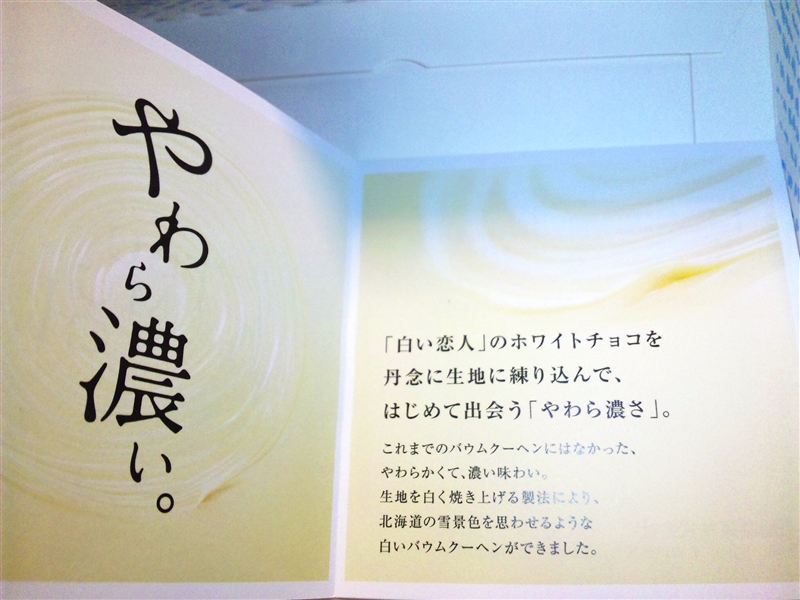 やわら濃い。
「白い恋人」のホワイトチョコを
丹念に生地に練り込んで、
はじめて出会う「やわら濃さ」。
これまでのバウムクーヘンにはなかった、
やわらかくて、濃い味わい。
生地を白く焼き上げる製法により、
北海道の雪景色を思わせるような
白いバウムクーヘンができました。